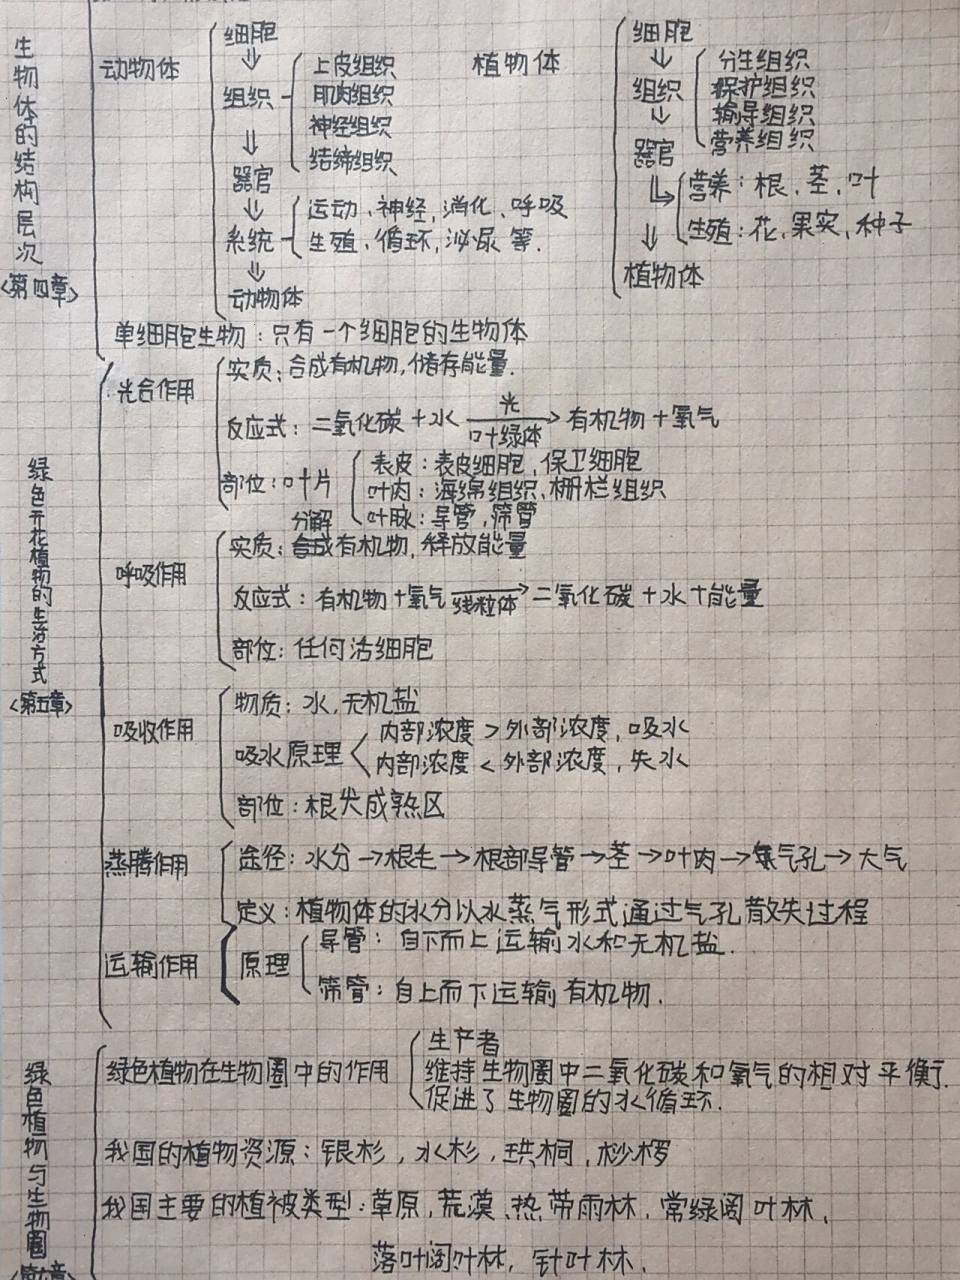 生物体的结构层次
<第四章>
动物体
细胞
组织
上皮组织
肌肉组织
神经组织
结缔组织
器官
系统
运动、神经,消化、呼吸
生殖、循环,泌尿等.
动物体
植物体
细胞
组织
分生组织
保护组织
输导组织
营养组织
器官
营养:根、茎、叶
生殖:花、果实、种子
植物体
单细胞生物:只有一个细胞的生物体
绿色开花植物的生活方式
<第五章>
光合作用
实质:合成有机物,储存能量.
反应式:二氧化碳+水 光 叶绿体 → 有机物+氧气
部位:叶片
表皮:表皮细胞,保卫细胞
叶肉:海绵组织,栅栏组织
叶脉:导管,筛管
呼吸作用
分解
实质:合成有机物,释放能量
反应式:有机物+氧气 线粒体 → 二氧化碳+水+能量
部位:任何活细胞
吸收作用
物质:水,无机盐
吸水原理
内部浓度>外部浓度,吸水
内部浓度<外部浓度,失水
部位:根尖成熟区
蒸腾作用
途径:水分→根毛→根部导管→茎→叶肉→气孔→大气
定义:植物体的水分以水蒸气形式通过气孔散失过程
运输作用
原理
导管:自下而上运输水和无机盐.
筛管:自上而下运输有机物.
绿色植物与生物圈
绿色植物在生物圈中的作用
生产者
维持生物圈中二氧化碳和氧气的相对平衡.
促进了生物圈的水循环.
我国的植物资源:银杉,水杉,珙桐,桫椤
我国主要的植被类型:草原,荒漠、热带雨林,常绿阔叶林、
落叶阔叶林,针叶林、